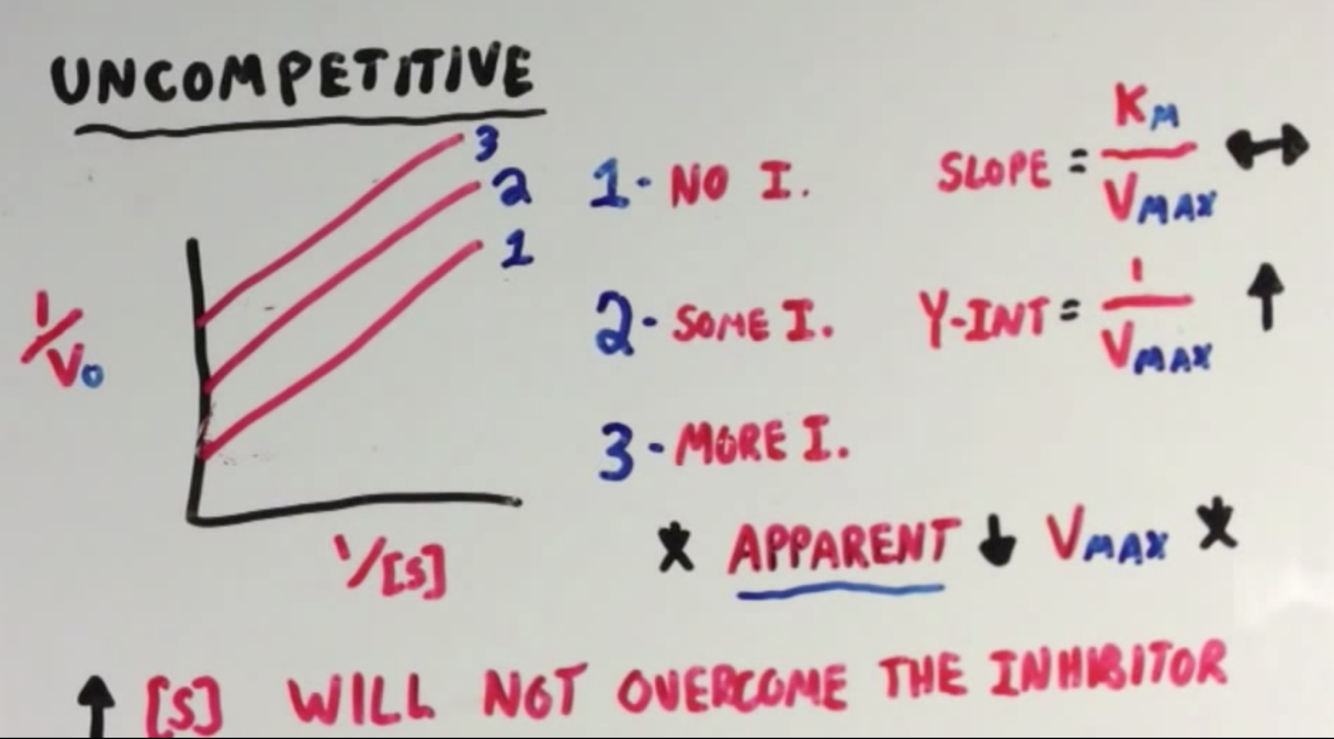 UNCOMPETITIVE
3
2
1
1/V₀
1/[S]
1- NO I.
2- SOME I.
3- MORE I.
SLOPE = Kₘ/Vₘₐₓ ↔
Y-INT = 1/Vₘₐₓ ↑
* APPARENT ↓ Vₘₐₓ *
↑ [S] WILL NOT OVERCOME THE INHIBITOR